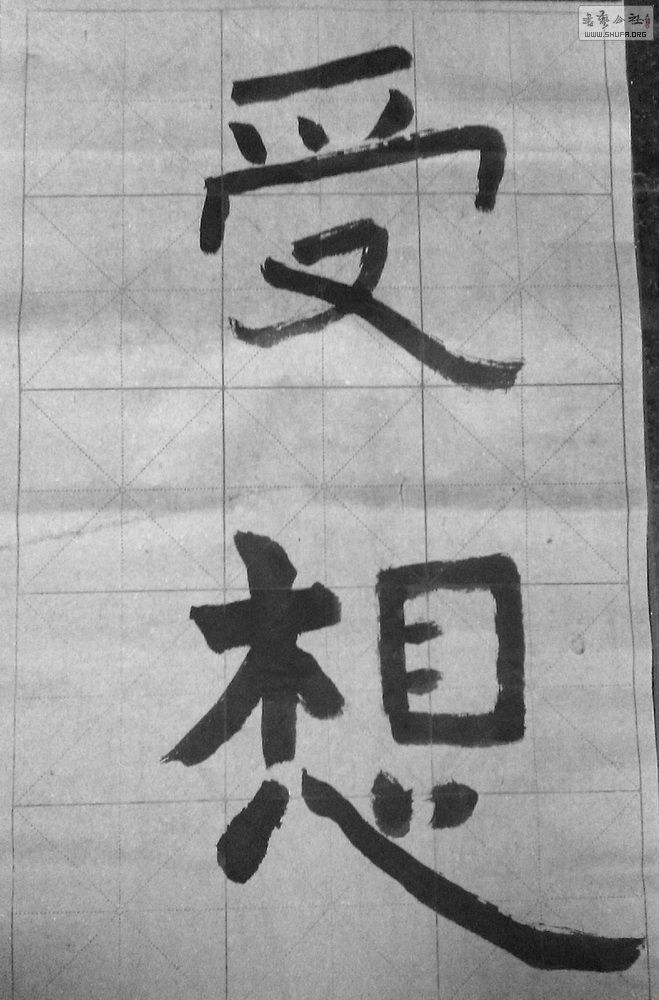 受
想
书艺公社
WWW.SHUFA.ORG